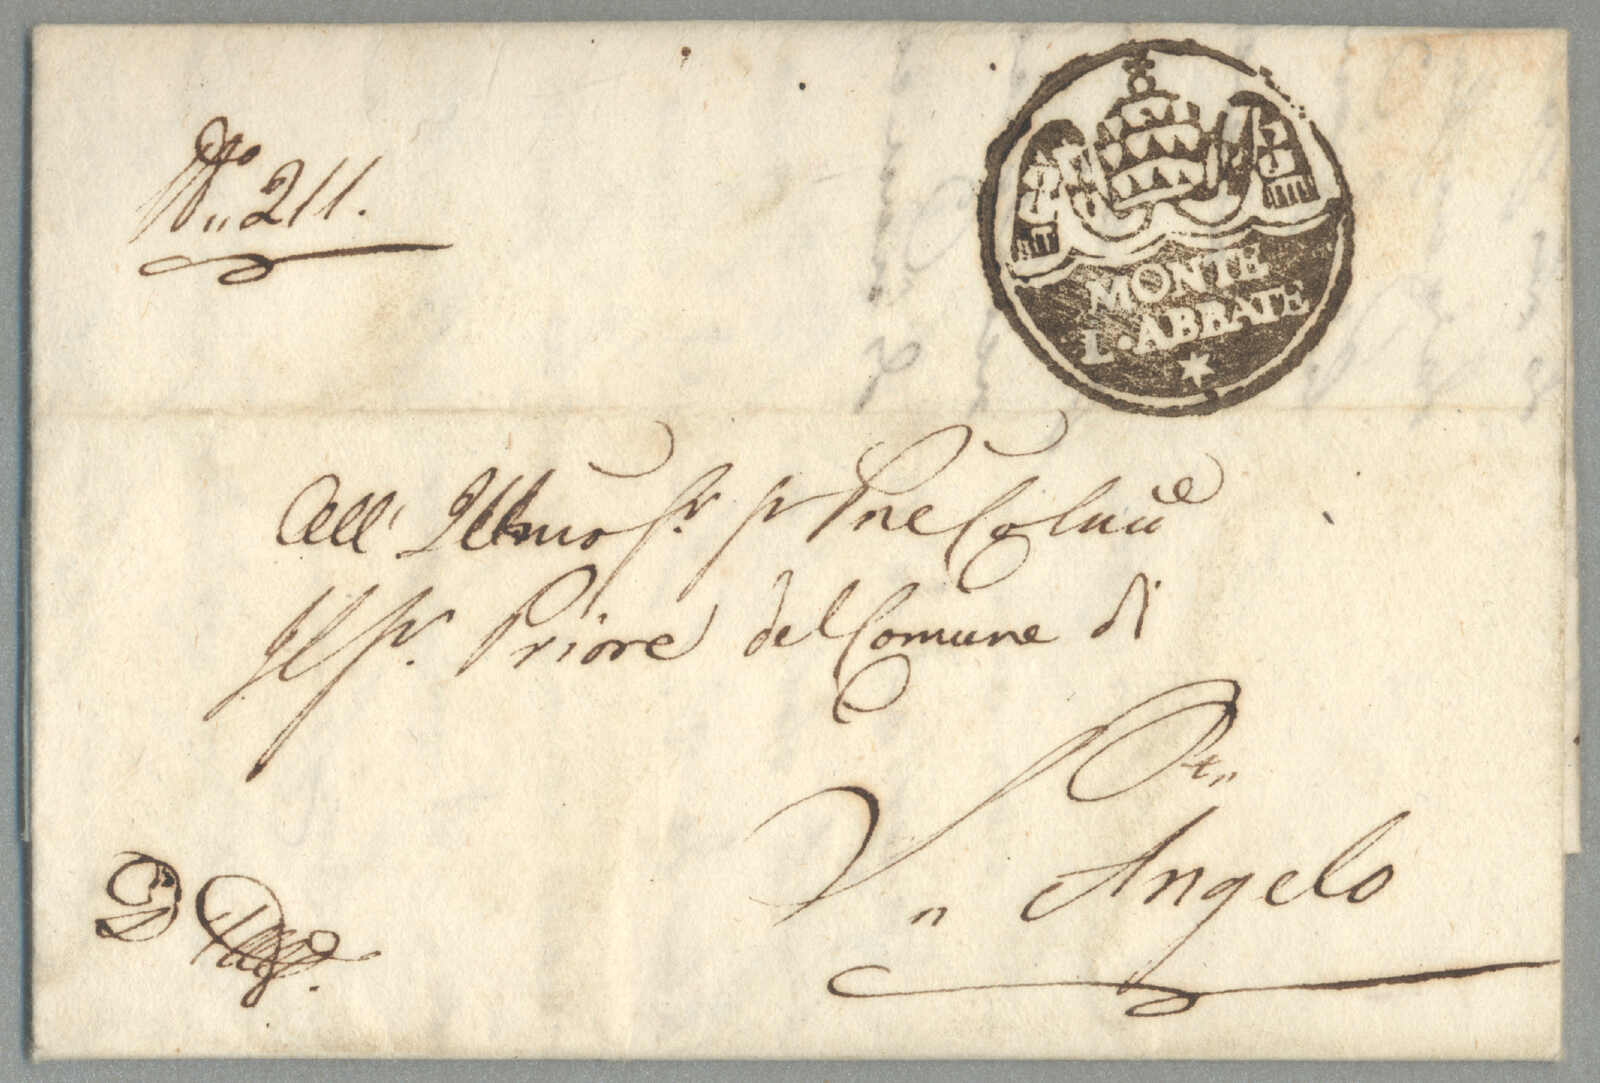 No. 211.
MONTE
L·ABBATE
All' Illmo Sr Sr Pne Colmo
Il Sr. Priore del Comune di
S. Angelo